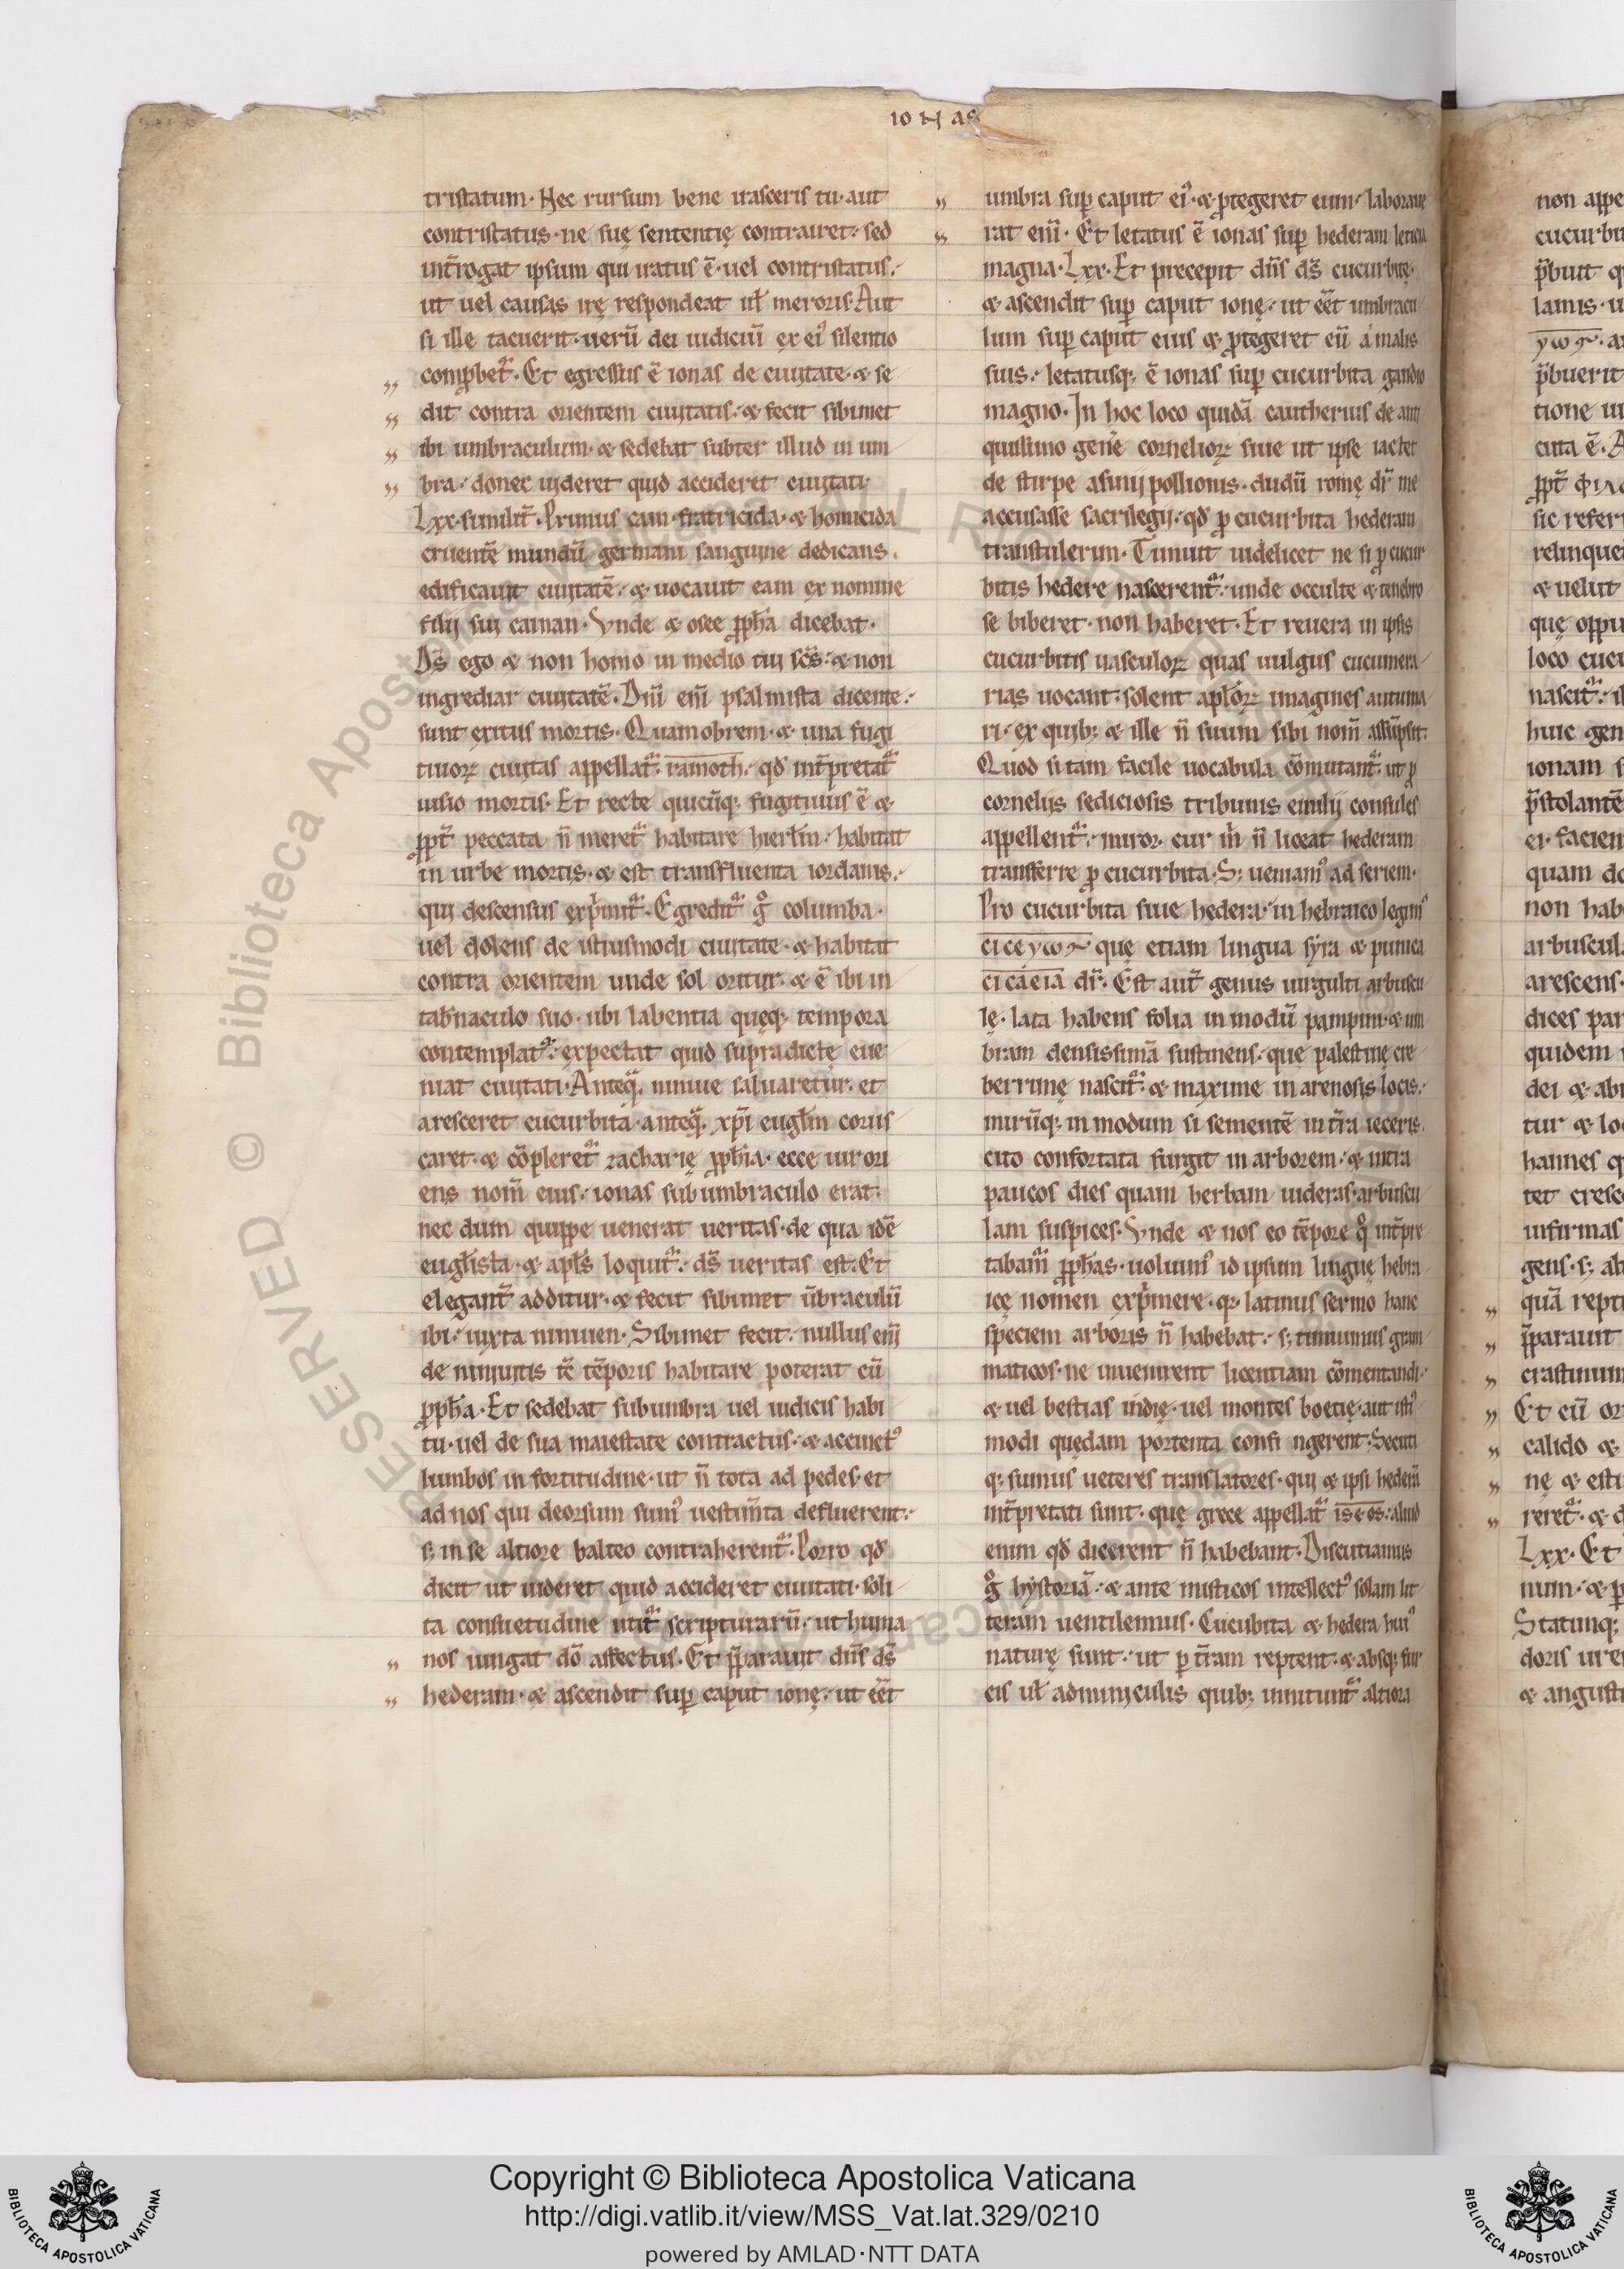 IONAS
tristatum· Nec rursum bene irasceris tu· aut
contristatus· ne suę sententię contrairet· sed
int̄rogat ipsum qui iratus ē· uel contristatus·
ut uel causas irę respondeat ul̄ meroris· Aut
si ille tacuerit· uerū dei iudiciū ex eiꝰ silentio
comꝓbet᷑· Et egressus ē ionas de ciuitate· & se
dit contra orientem ciuitatis· & fecit sibimet
ibi umbraculum· & sedebat subter illud in um
bra· donec uideret quid accideret ciuitati·
Lxx· similit̄· Primus cain· fratricida· & homicida
cruentē mundū germani sanguine dedicans·
edificauit ciuitatē· & uocauit eam ex nomine
filij sui cainan· Vnde & osee ꝓph̄a dicebat·
Ds̄ ego & non homo in medio tui sc̄s· & non
ingrediar ciuitatē· Dn̄i eni̅ psalmista dicente·
sunt exitus mortis· Quamobrem· & una fugi
tiuoꝝ ciuitas appellat᷑· ramoth· qd̄ int̄pretat᷑
uisio mortis· Et recte quicūq; fugitiuus ē &
ꝓpt̄ peccata n̄ meret᷑ habitare hierl̄m· habitat
in urbe mortis· & est transfluenta iordanis·
qui descensus exp̄mit᷑· Egredit᷑ gͦ columba·
uel dolens de istiusmodi ciuitate· & habitat
contra orientem unde sol oritur· & ē ibi in
tab̄naculo suo· ubi labentia quęq; tempora
contemplat᷑· expectat quid supradictę eue
niat ciuitati· Anteq̄ niniue saluaretur· et
aresceret cucurbita· anteq̄ xp̄i eugl̄m corus
caret· & cōpleret᷑ zacharię ꝓph̄ia· ecce uir ori
ens nom̄ eius· ionas sub umbraculo erat·
nec dum quippe uenerat ueritas· de qua idē
eugl̄ista· & apl̄s loquit᷑· ds̄ ueritas est· Et
elegant̄ additur· & fecit sibimet ūbraculū
ibi· iuxta niniuen· Sibimet fecit· nullus eni̅
de niniuitis tē tēporis habitare poterat cū
ꝓph̄a· Et sedebat sub umbra uel iudicis habi
tu· uel de sua maiestate contractus· & accinctꝰ
lumbos in fortitudine· ut n̄ tota ad pedes· et
ad nos qui deorsum sumꝰ uestim̄ta defluerent·
s; in se altiore balteo contraherent᷑· Porro qd̄
dicit ut uideret quid accideret ciuitati· soli
ta consuetudine utit᷑ scripturarū· ut huma
nos iungat dō affectus· Et p̄parauit dn̄s ds̄
hederam· & ascendit sup̱ caput ionę· ut eēt
umbra sup̱ caput eiꝰ· & ꝓtegeret eum· laboraue
rat eni̅· Et letatus ē ionas sup̱ hederam leticia
magna· Lxx· Et precepit dn̄s ds̄ cucurbitę·
& ascendit sup̱ caput ionę· ut eēt umbracu
lum sup̱ caput eius & ꝓtegeret eū a malis
suis· letatusq; ē ionas sup̱ cucurbita gaudio
magno· In hoc loco quidā cautherius de anti
quissimo gen̄e cornelioꝝ siue ut ipse iactet
de stirpe asinij pollionis· dudū romę dr̄ me
accusasse sacrilegij· qd̄ ꝓ cucurbita hederam
transtulerim· Timuit uidelicet ne si ꝓ cucur
bitis hedere nascerent᷑· unde occulte & tenebro
se biberet· non haberet· Et reuera in ipsis
cucurbitis uasculoꝝ quas uulgus cucumera
rias uocant· solent apl̄oꝝ imagines autuma
ri· ex quib; & ille n̄ suum sibi nom̄ assūpsit·
Quod si tam facile uocabula cōmutant᷑· ut ꝓ
cornelijs sediciosis tribunis emilij consules
appellent᷑· miror· cur m̄ n̄ liceat hederam
transferre ꝓ cucurbita· S; ueniamꝰ ad seriem·
Pro cucurbita siue hedera· in hebraico legimꝰ
ciceyωn quę etiam lingua syra & punica
cicaeia dr̄· Est aut̄ genus uirgulti arbuscu
lę· lata habens folia in modū pampini· & um
bram densissimā sustinens· quę palestinę cre
berrimę nascit᷑· & maxime in arenosis locis·
mirūq; in modum si sementē in t̄ra ieceris·
cito confortata surgit in arborem· & intra
paucos dies quam herbam uideras· arbuscu
lam suspices· Vnde & nos eo tēpore qͦ int̄pre
tabam᷑ ꝓph̄as· uoluimꝰ id ipsum linguę hebra
icę nomen exp̄mere· q; latinus sermo hanc
speciem arboris n̄ habebat· s; timuimus gram
maticos· ne inuenirent licentiam cōmentandi·
& uel bestias indię· uel montes boetię· aut istiꝰ
modi quędam portenta confi ngerent· Secuti
q; sumus ueteres translatores· qui & ipsi hederā
int̄pretati sunt· quę grece appellat᷑ iscos· aliud
enim qd̄ dicerent n̄ habebant· Discutiamus
gͦ hystoriā· & ante misticos intellectꝰ solam lit
teram uentilemus· Cucubita & hedera huiꝰ
naturę sunt· ut ꝑ t̄ram reptent· & absq; fur
cis ul̄ adminiculis quib; innitunt᷑ altiora
Copyright © Biblioteca Apostolica Vaticana
http://digi.vatlib.it/view/MSS_Vat.lat.329/0210
powered by AMLAD·NTT DATA
BIBLIOTECA APOSTOLICA VATICANA
BIBLIOTECA APOSTOLICA VATICANA